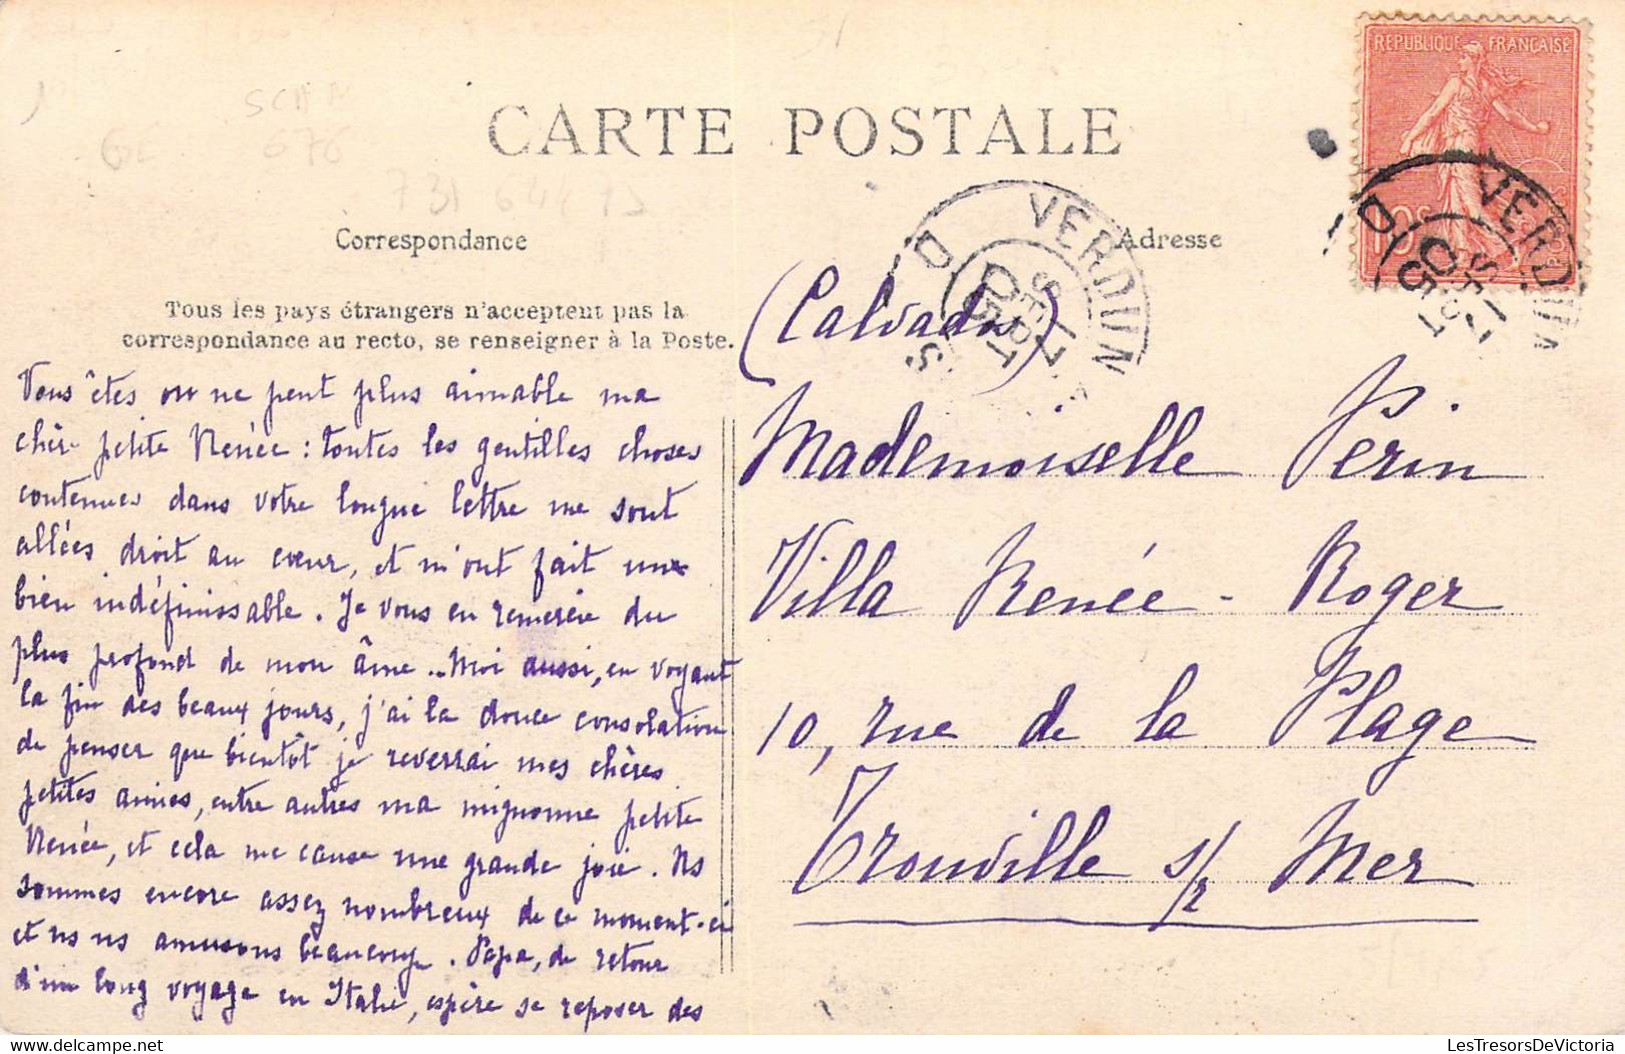 CARTE POSTALE
Correspondance
Adresse
Tous les pays étrangers n'acceptent pas la
correspondance au recto, se renseigner à la Poste.
Vous êtes on ne peut plus aimable ma
petite Renée : toutes les gentilles choses
contenues dans votre longue lettre me sont
allées droit au cœur, et m'ont fait un
bien indéfinissable. Je vous en remercie du
plus profond de mon âme .. Moi aussi, en voyant
la fin des beaux jours, j'ai la douce consolation
de penser que bientôt je reverrai mes chères
petites amies, entre autres ma mignonne petite
Renée, et cela me cause une grande joie. Ns
sommes encore assez nombreux de ce moment-ci
et ns ns amusons beaucoup. Papa, de retour
d'un long voyage en Italie, espère se reposer des
(Calvados)
Mademoiselle Perin
Villa Renée - Roger
10, rue de la Plage
Trouville s/ Mer
REPUBLIQUE FRANÇAISE
10c
POSTES
VERDUN
7
SEPT
05
VERDUN
7
SEPT
05
SCAN
676
LesTresorsDeVictoria
lestresorsdevictoria.delcampe.net